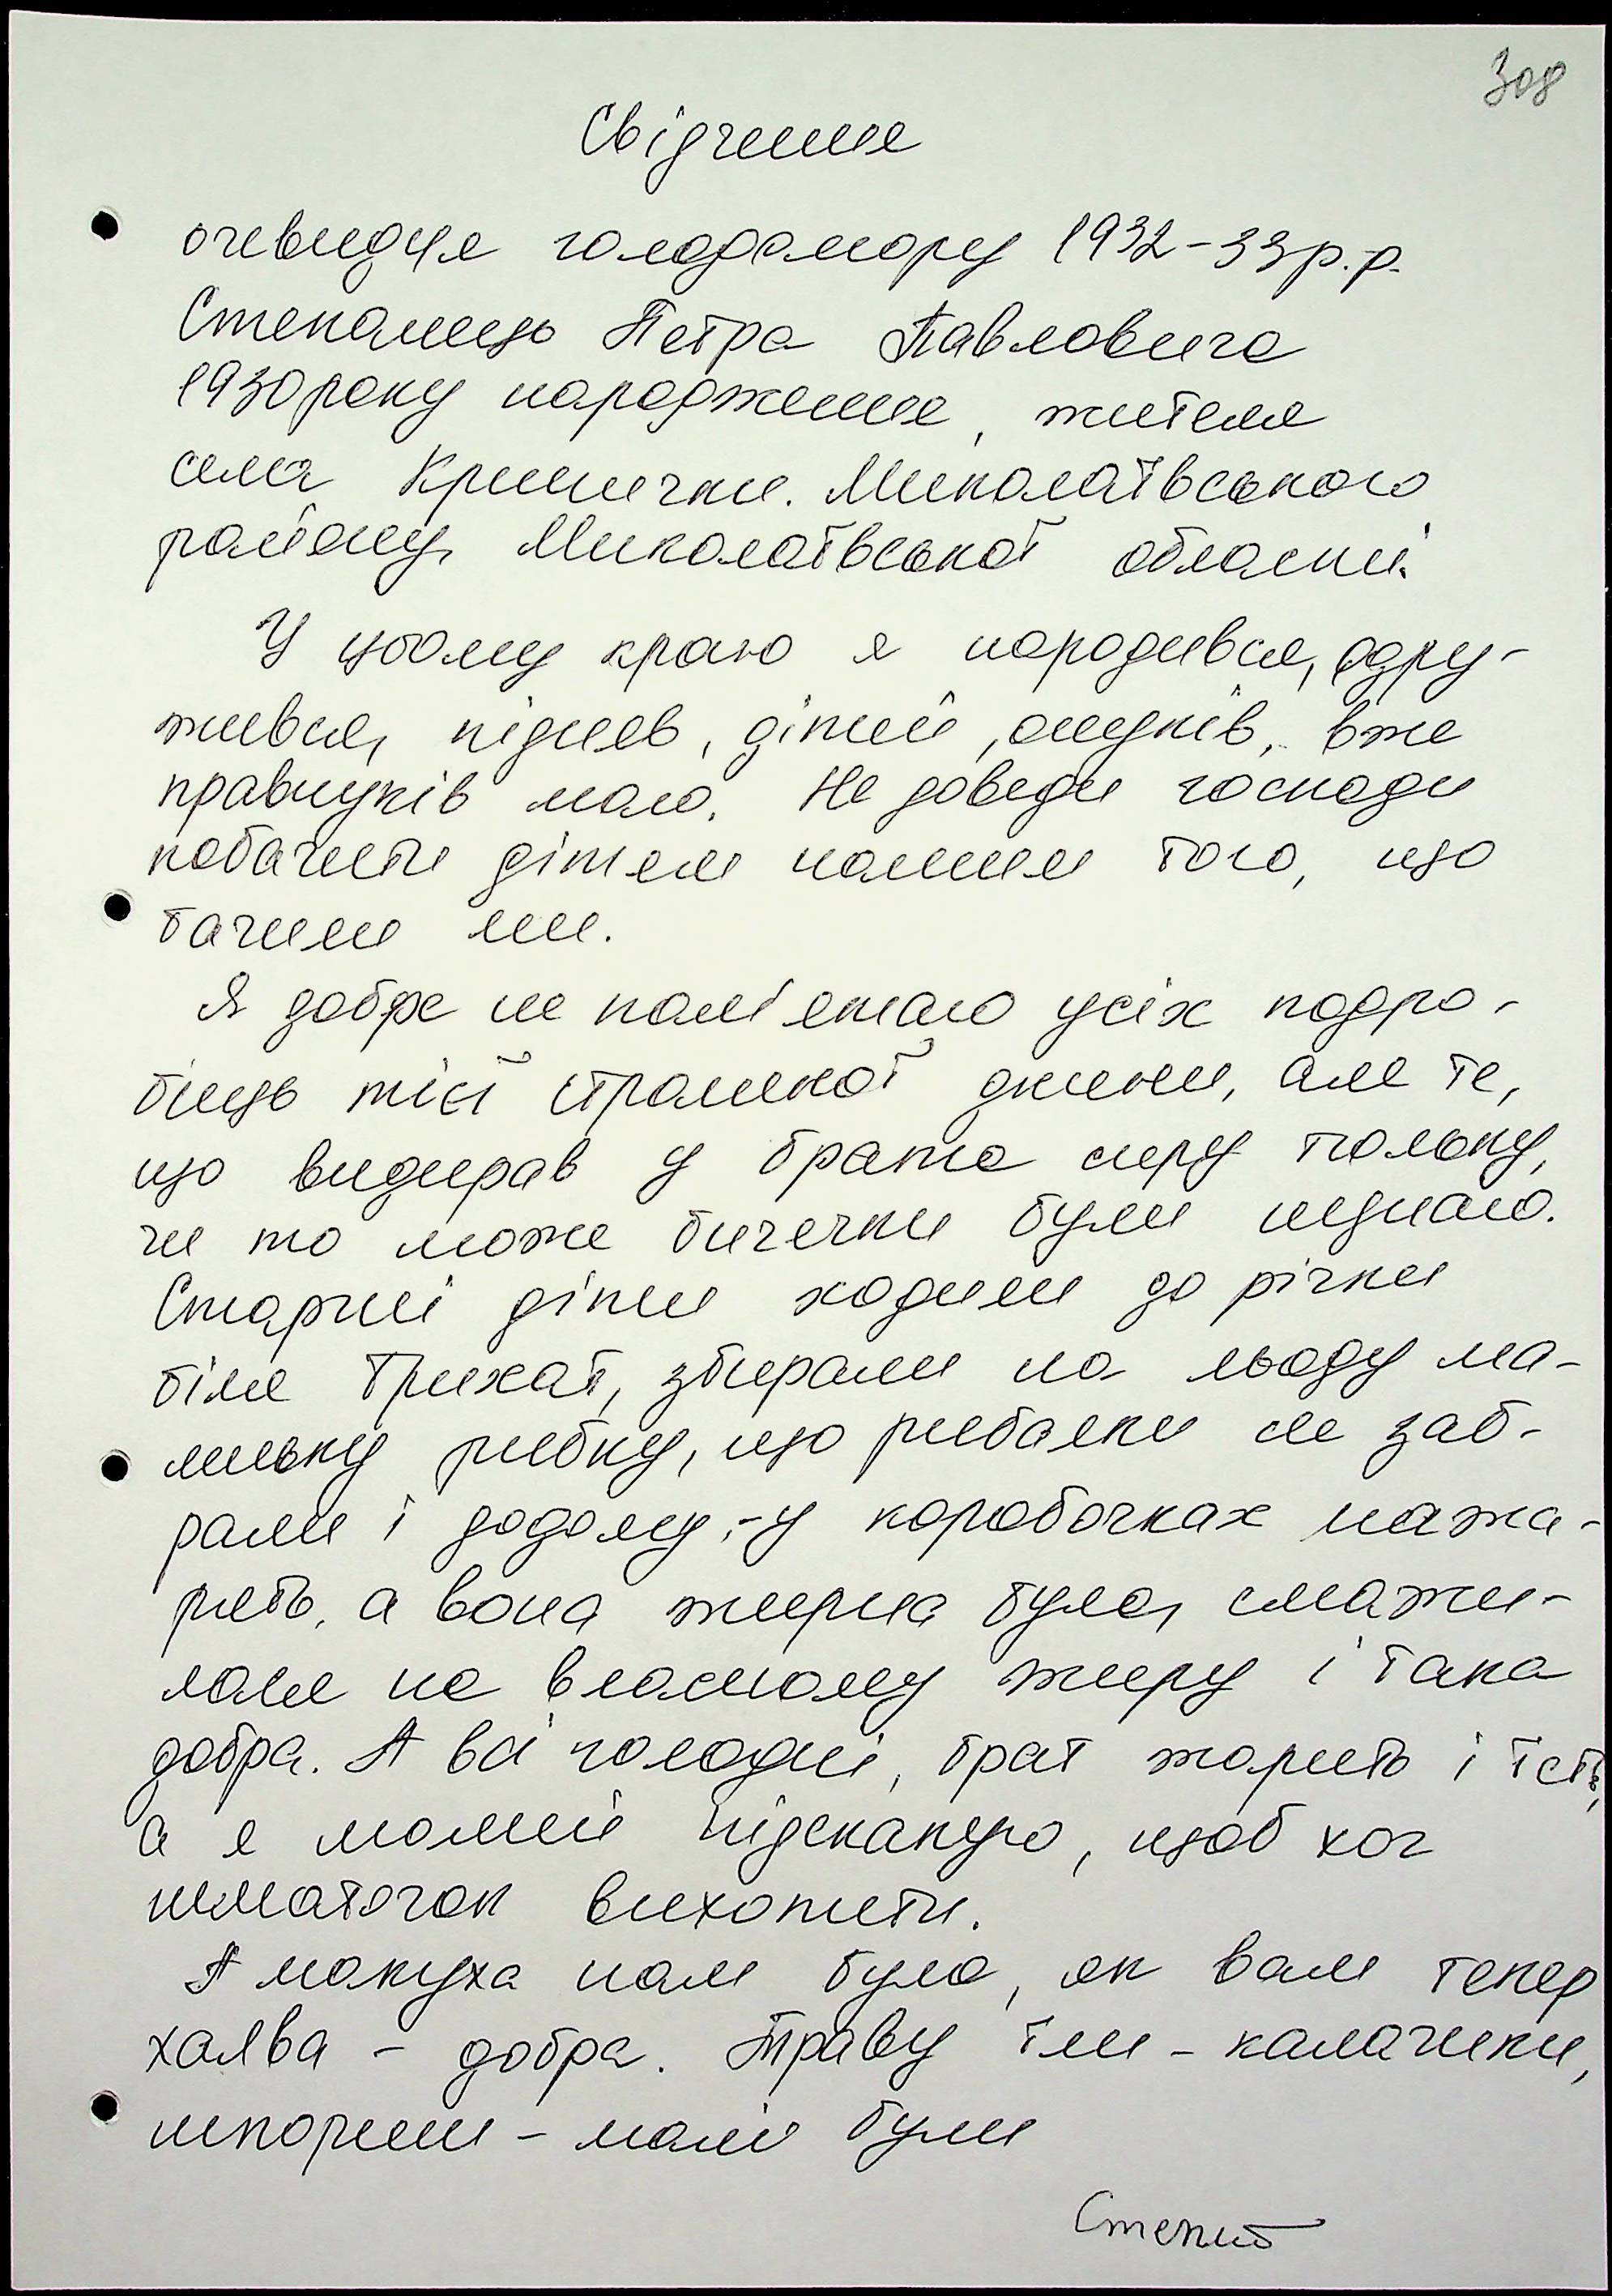 308
Свідчення
очевидця голодомору 1932-33р.р.
Степанець Петра Павловича
1930року народження, жителя
села Кринички. Миколаївського
району, Миколаївської області.
У цьому краю я народився, одру-
жився, підняв, дітей, онуків, вже
правнуків маю. Не доведи господи
побачити дітям нашим того, що
бачили ми.
Я добре не пам'ятаю усіх подро-
биць тієї страшної днини, але те,
що видирав у брата сиру тюльку,
чи то може бичечки були не знаю.
Старші діти ходили до річки
біля Трихат, збирали на льоду ма-
леньку рибку, що рибалки не заб-
рали і додому,-у коробочках нажа-
рять, а вона жирна була, смажи-
лася на власному жиру і така
добра. А всі голодні, брат жарить і їсть,
а я малий підскакую, щоб хоч
шматочок вихопити.
А макуха нам була, як вам тепер
халва - добра. Траву їли - калачики,
шпориш - малі були